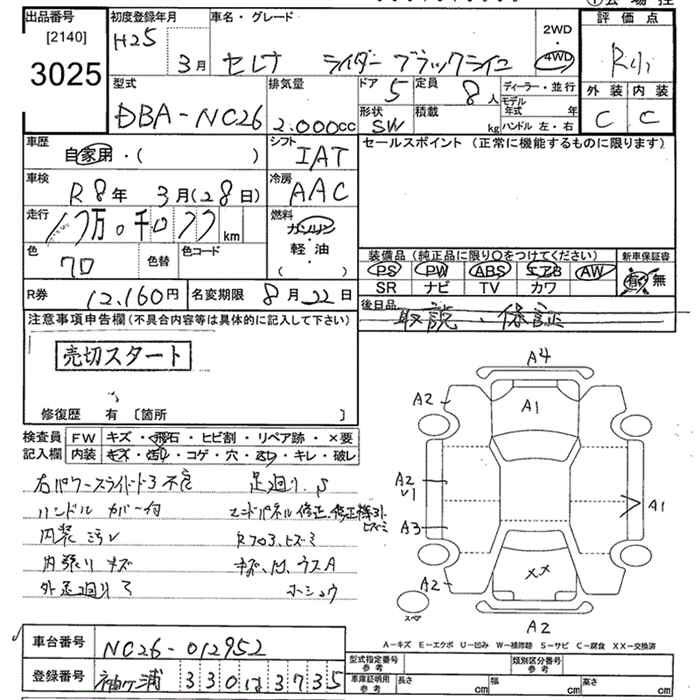 出品番号
[2140]
3025
初度登録年月
H25
3月
車名・グレード
セレナ ライダー ブラックライン
2WD
・
4WD
評価点
外装 内装
C C
型式
DBA-NC26
排気量
2.000cc
ドア 5
定員 8人
形状 SW
積載 kg
ディーラー・並行
モデル年式 年
ハンドル 左・右
車歴
自家用・( )
シフト
IAT
セールスポイント (正常に機能するものに限ります)
車検
R8年 3月(28日)
冷房
AAC
走行
km
燃料
ガソリン
・
軽油
( )
色
色替
色コード
装備品 (純正品に限り〇をつけてください)
PS PW ABS エアB AW
SR ナビ TV カワ
新車保証書
有・無
R券 12,160円
名変期限 8月22日
後日品 取説・保証
注意事項申告欄 (不具合内容等は具体的に記入して下さい)
売切スタート
修復歴 有 〔箇所 〕
検査員記入欄
FW キズ・飛石・ヒビ割・リペア跡・×要
内装 キズ・汚れ・コゲ・穴・沈み・キレ・破レ
右パワースライドドア不良 足廻り、S
ハンドル カバー付
内装 ヨゴレ
内張り キズ
外 足廻り サ
ホシュウ
A4
A2
A1
A2
A3
A1
××
A2
A2
スペア
A-キズ E-エクボ U-凹み W-補修跡 S-サビ C-腐食 XX-交換済
車台番号 NC26-012952
登録番号 袖ヶ浦 330 は 3735
型式指定番号 参考
類別区分番号 参考
車庫証明用 参考
長さ cm
幅 cm
高さ cm